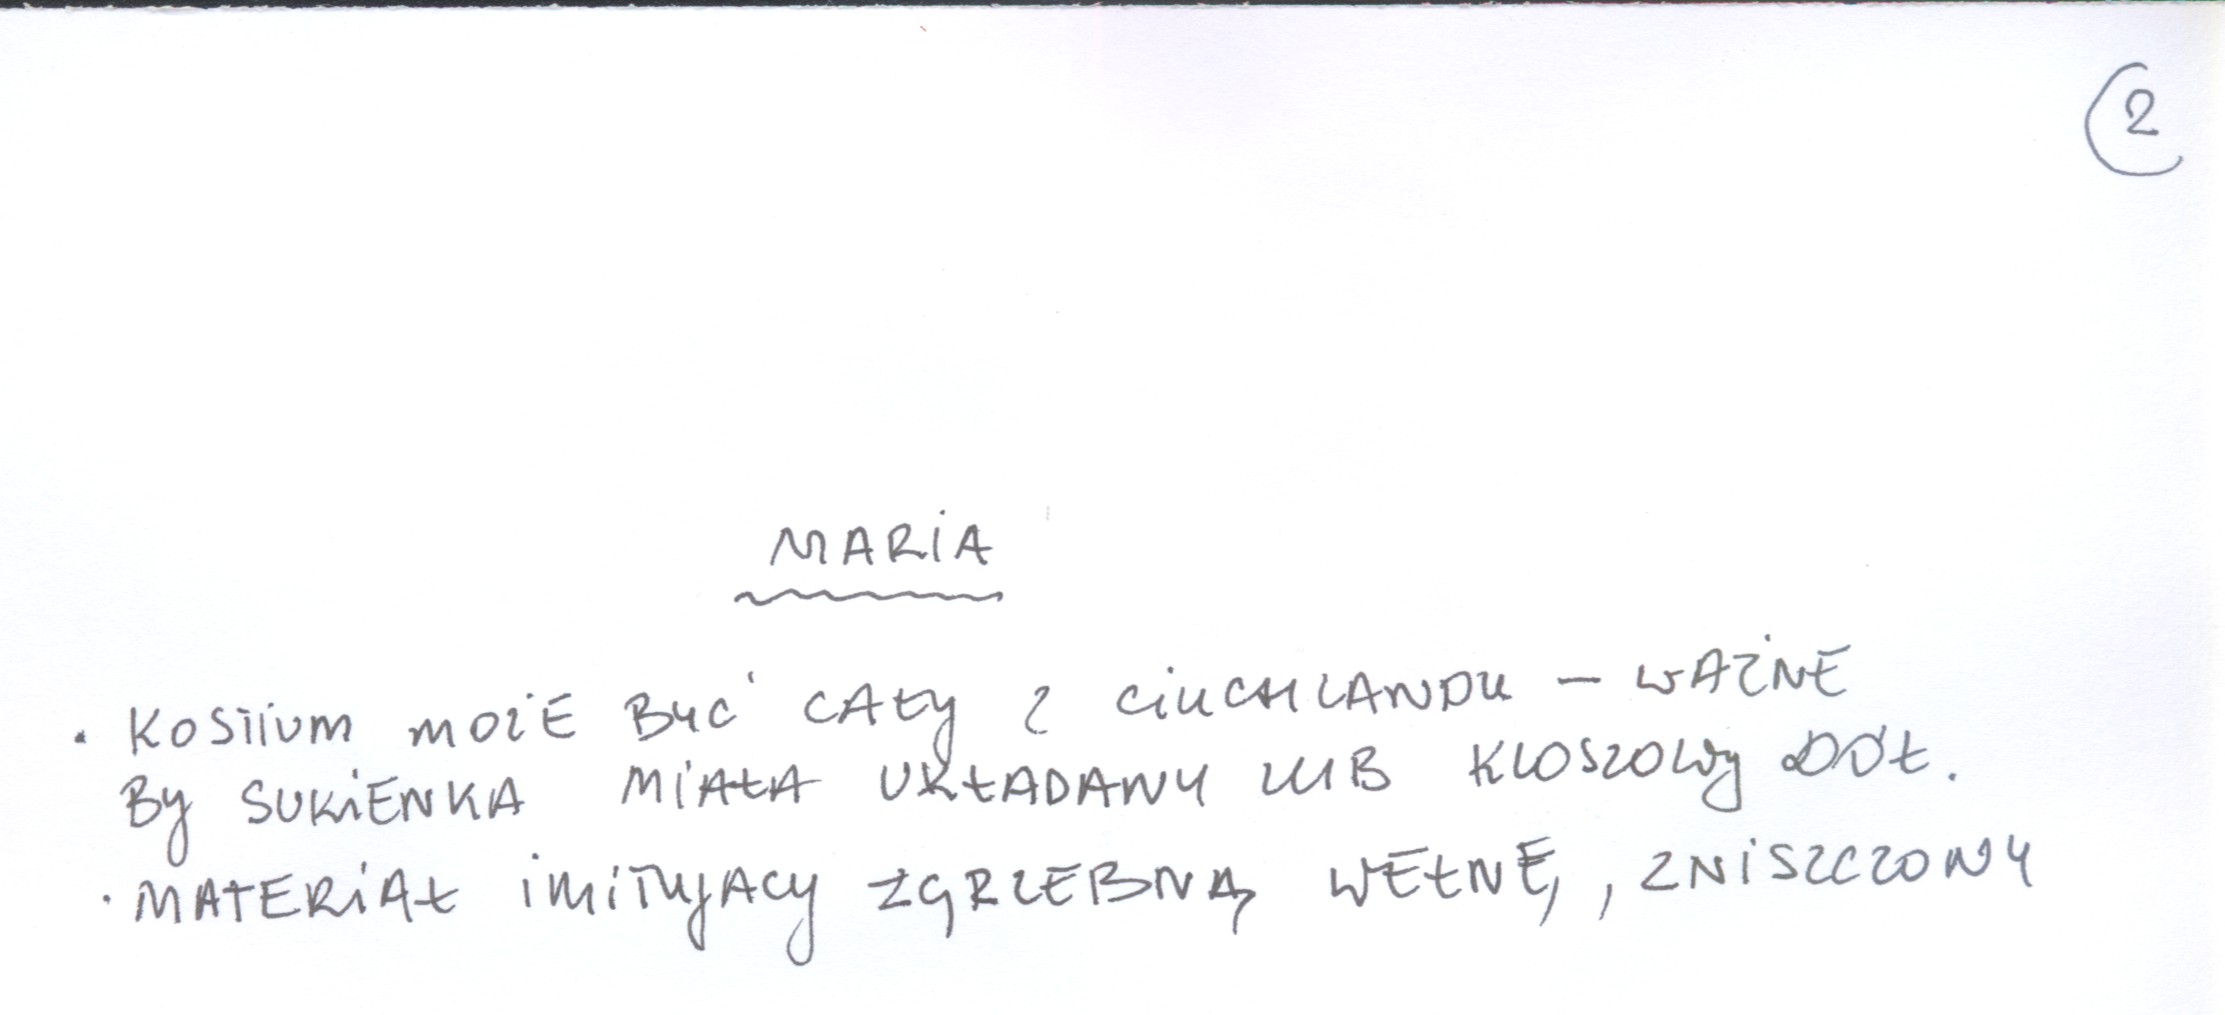 2
MARIA
• KOSTIUM MOŻE BYĆ CAŁY Z CIUCHLANDU – WAŻNE
BY SUKIENKA MIAŁA UKŁADANY LUB KLOSZOWY DÓŁ.
• MATERIAŁ IMITUJĄCY ZGRZEBNĄ WEŁNĘ, ZNISZCZONY